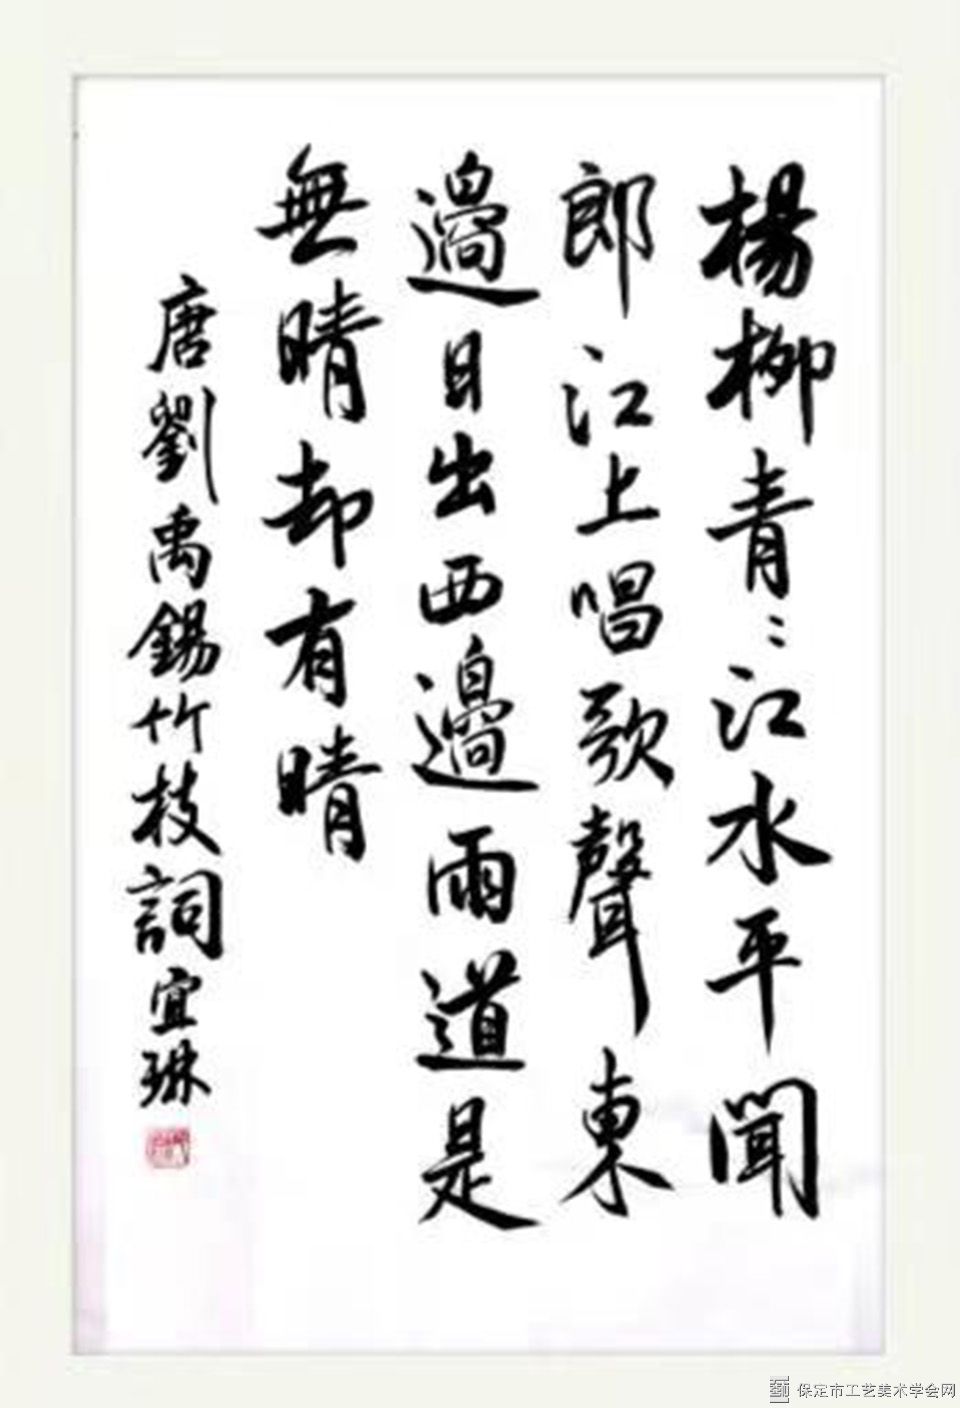 楊柳青〻江水平聞
郎江上唱歌聲東
邊日出西邊雨道是
無晴却有晴
唐劉禹錫竹枝詞宜琳
保定市工艺美术学会网